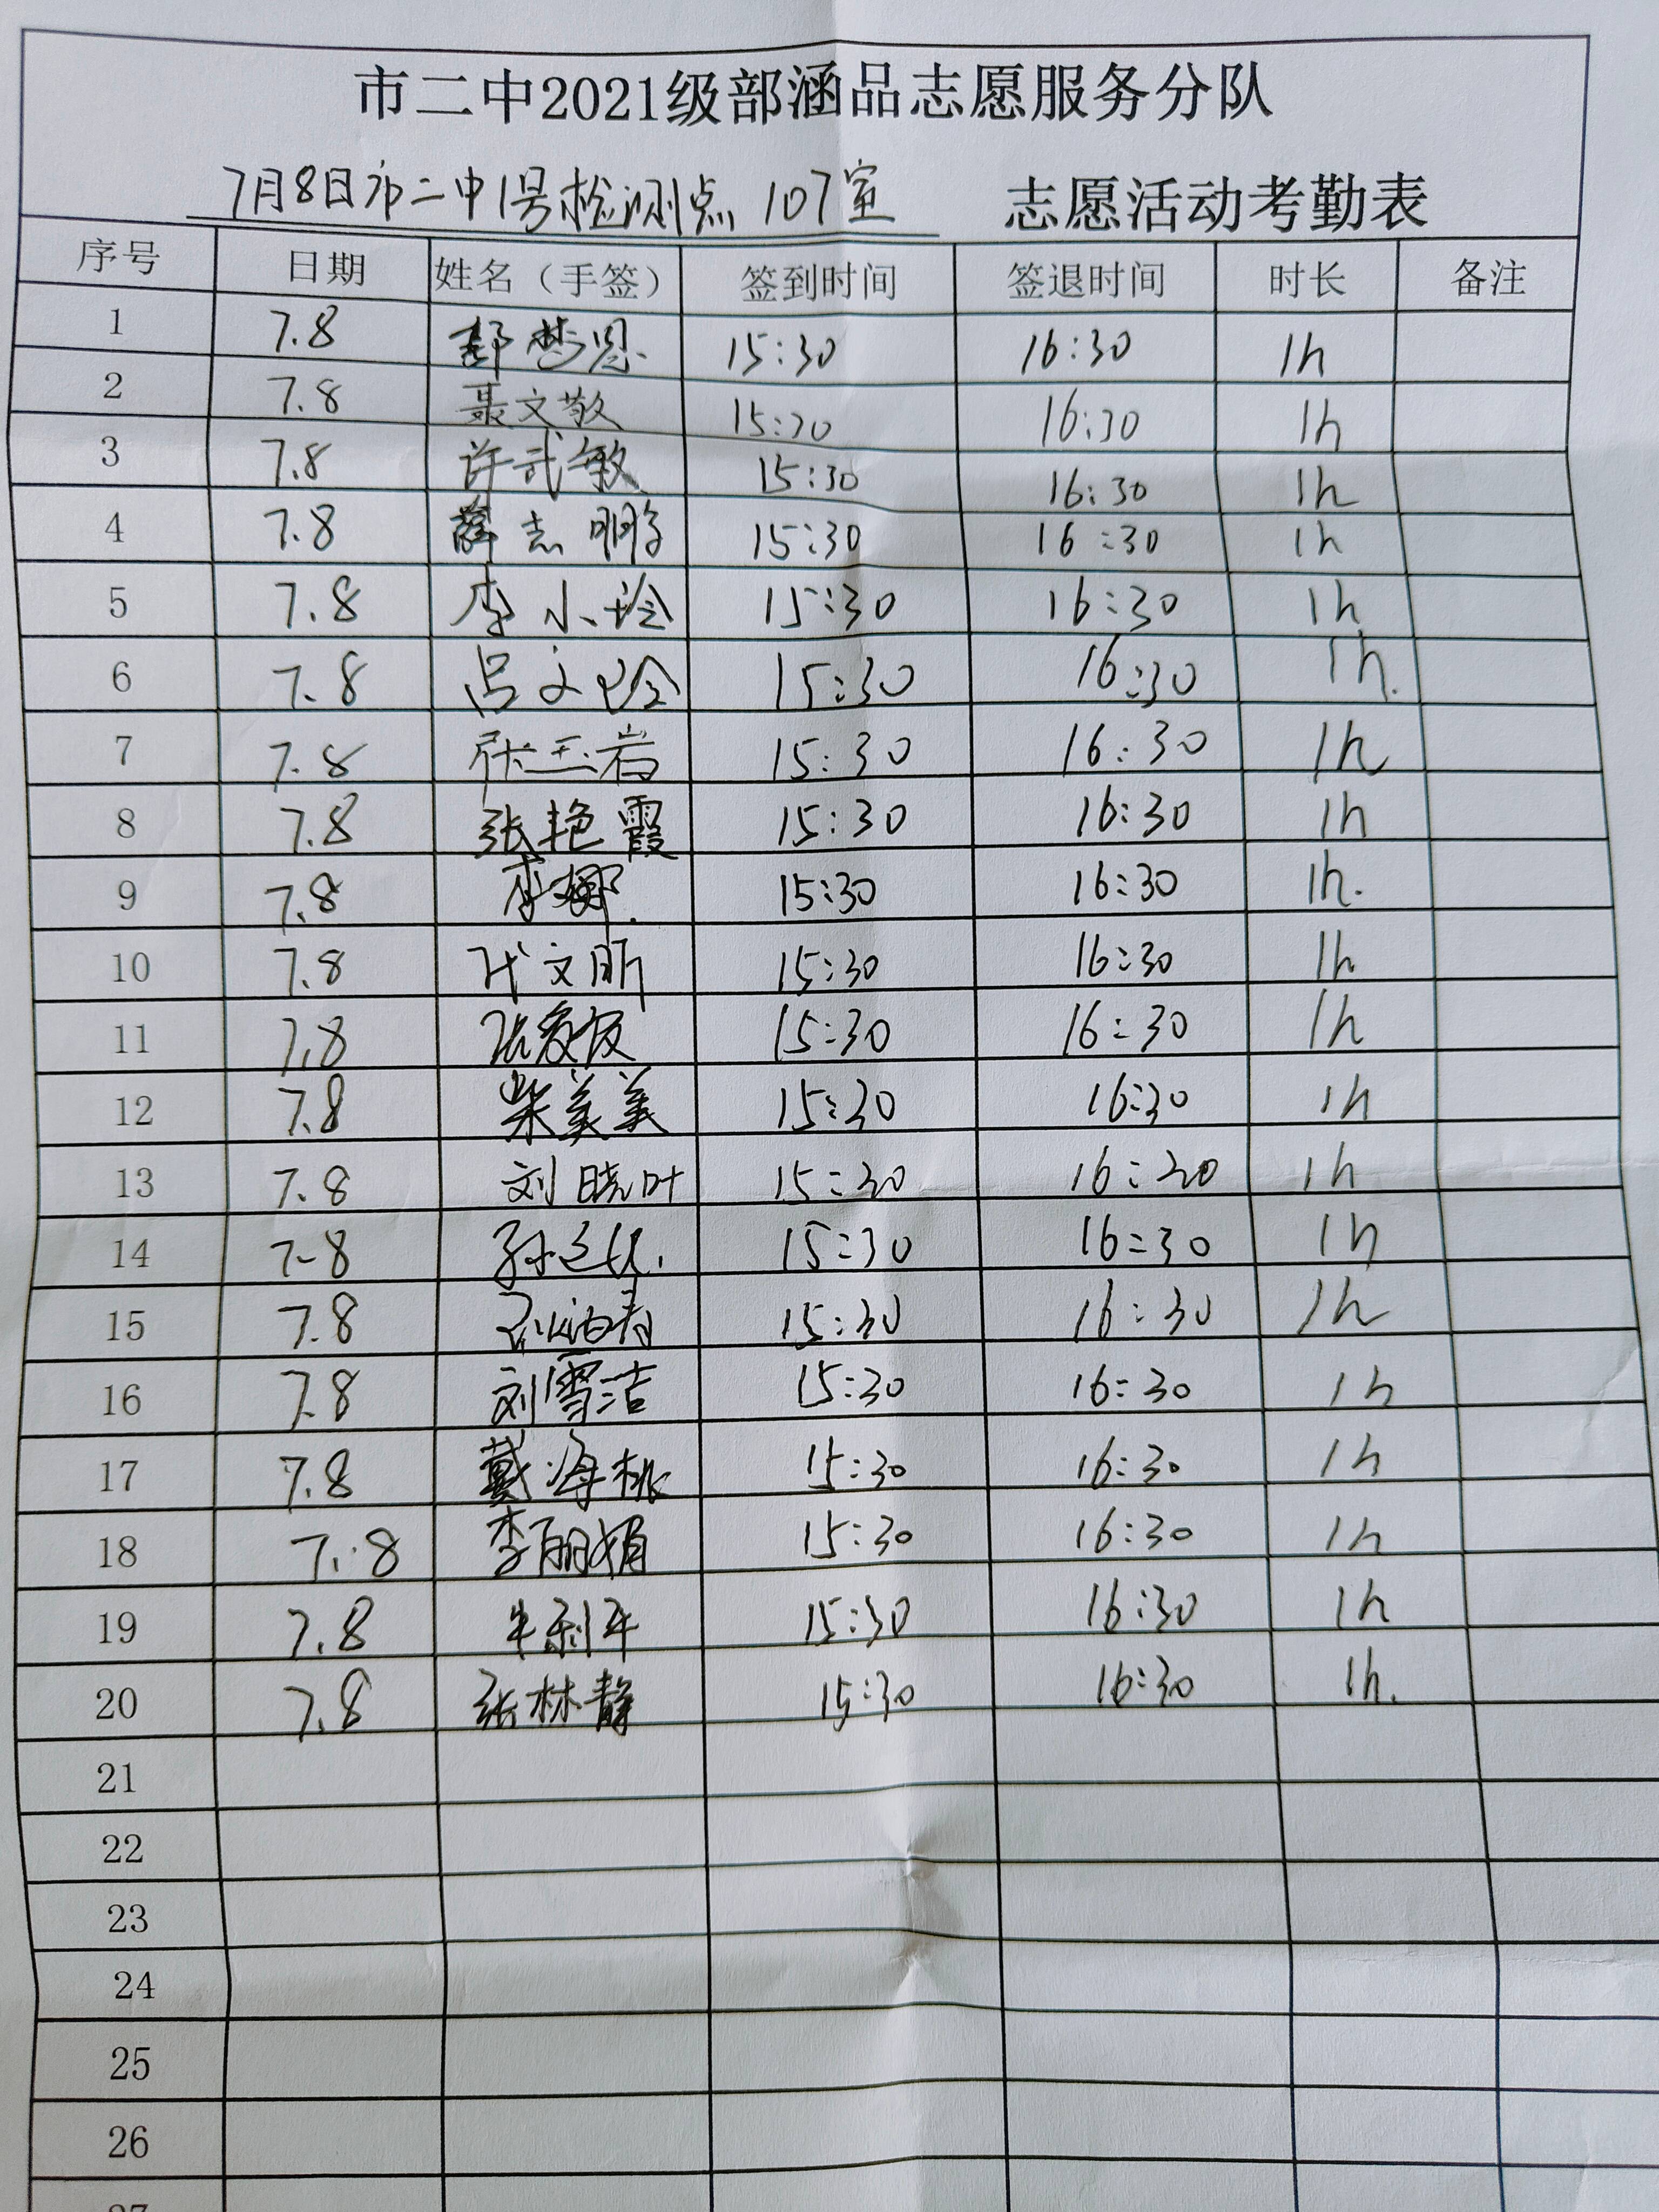 市二中2021级部涵品志愿服务分队
7月8日市二中1号检测点 107室 志愿活动考勤表
序号 日期 姓名（手签） 签到时间 签退时间 时长 备注
1 7.8 15:30 16:30 1h
2 7.8 聂文敬 15:30 16:30 1h
3 7.8 许武敏 15:30 16:30 1h
4 7.8 薛志鹏 15:30 16:30 1h
5 7.8 李小玲 15:30 16:30 1h
6 7.8 吕文玲 15:30 16:30 1h.
7 7.8 张玉岩 15:30 16:30 1h
8 7.8 张艳霞 15:30 16:30 1h
9 7.8 李娜. 15:30 16:30 1h.
10 7.8 代文昕 15:30 16:30 1h
11 7.8 15:30 16:30 1h
12 7.8 柴美美 15:30 16:30 1h
13 7.8 刘晓叶 15:30 16:30 1h
14 7.8 15:30 16:30 1h
15 7.8 15:30 16:30 1h
16 7.8 刘雪洁 15:30 16:30 1h
17 7.8 戴海桃 15:30 16:30 1h
18 7.8 李丽娟 15:30 16:30 1h
19 7.8 牛利平 15:30 16:30 1h
20 7.8 张林静 15:30 16:30 1h.
21
22
23
24
25
26
27